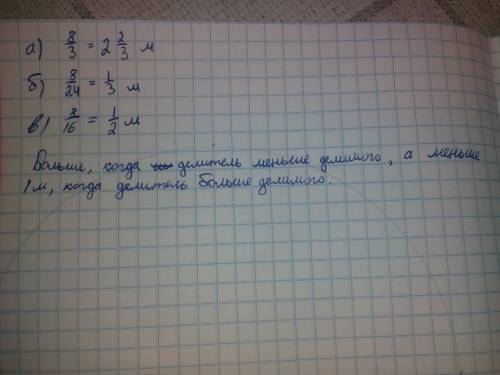 а) 8/3 = 2 2/3 м
б) 8/24 = 1/3 м
в) 8/16 = 1/2 м
Больше, когда делитель меньше делимого, а меньше
1м, когда делитель больше делимого.